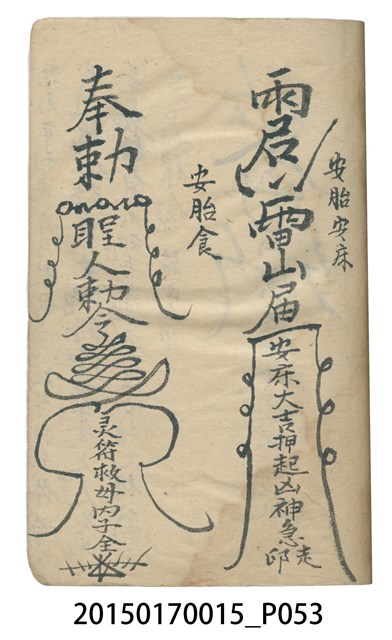 安胎安床
雷山屆
安床大吉押起凶神急走
安胎食
奉勅
人勅令
灵符救母內子全
20150170015_P053